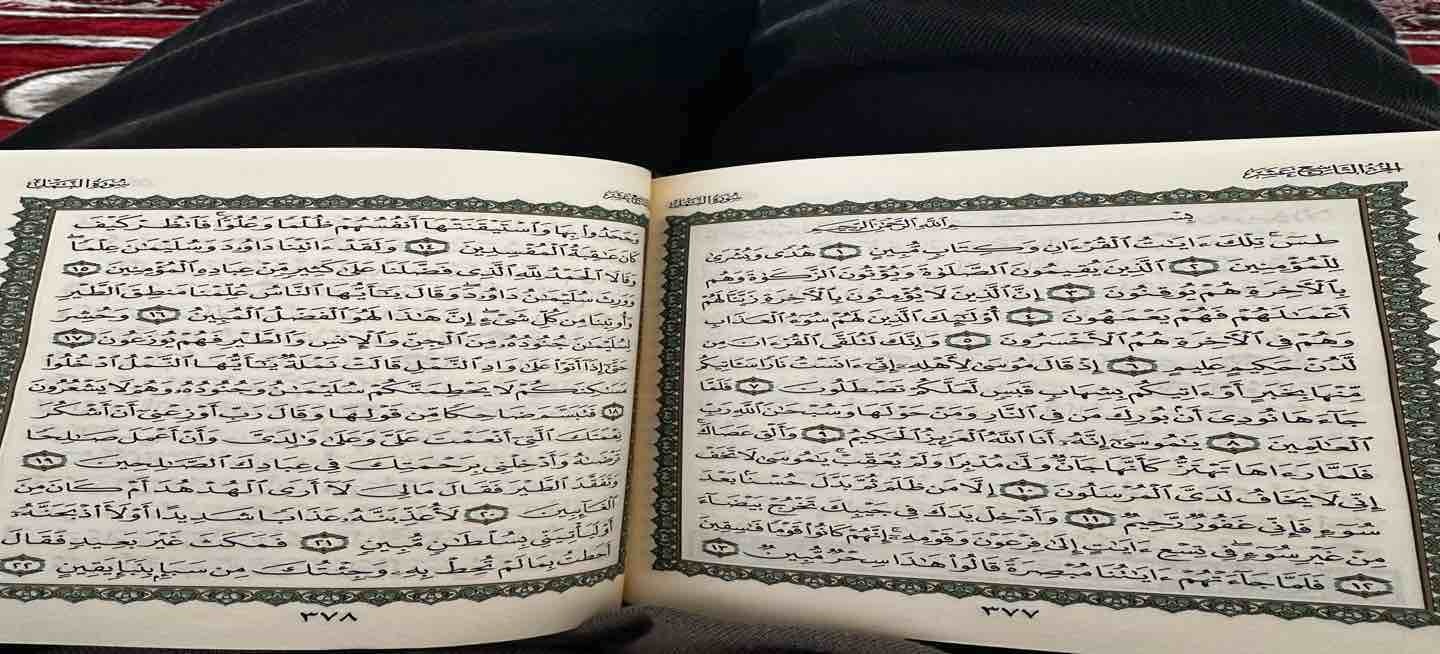 الجزء التاسع عشر
سورة النمل
بسم الله الرحمن الرحيم
طسٓ تِلْكَ ءَايَٰتُ ٱلْقُرْءَانِ وَكِتَابٍ مُّبِينٍ ١ هُدًى وَبُشْرَىٰ
لِلْمُؤْمِنِينَ ٢ ٱلَّذِينَ يُقِيمُونَ ٱلصَّلَوٰةَ وَيُؤْتُونَ ٱلزَّكَوٰةَ وَهُم
بِٱلْأَخِرَةِ هُمْ يُوقِنُونَ ٣ إِنَّ ٱلَّذِينَ لَا يُؤْمِنُونَ بِٱلْأَخِرَةِ زَيَّنَّا لَهُمْ
أَعْمَٰلَهُمْ فَهُمْ يَعْمَهُونَ ٤ أُو۟لَٰٓئِكَ ٱلَّذِينَ لَهُمْ سُوٓءُ ٱلْعَذَابِ
وَهُمْ فِى ٱلْأَخِرَةِ هُمُ ٱلْأَخْسَرُونَ ٥ وَإِنَّكَ لَتُلَقَّى ٱلْقُرْءَانَ مِن
لَّدُنْ حَكِيمٍ عَلِيمٍ ٦ إِذْ قَالَ مُوسَىٰ لِأَهْلِهِۦٓ إِنِّىٓ ءَانَسْتُ نَارًا سَـَٔاتِيكُم
مِّنْهَا بِخَبَرٍ أَوْ ءَاتِيكُم بِشِهَابٍ قَبَسٍ لَّعَلَّكُمْ تَصْطَلُونَ ٧ فَلَمَّا
جَآءَهَا نُودِىَ أَنۢ بُورِكَ مَن فِى ٱلنَّارِ وَمَنْ حَوْلَهَا وَسُبْحَٰنَ ٱللَّهِ رَبِّ
ٱلْعَٰلَمِينَ ٨ يَٰمُوسَىٰٓ إِنَّهُۥٓ أَنَا ٱللَّهُ ٱلْعَزِيزُ ٱلْحَكِيمُ ٩ وَأَلْقِ عَصَاكَ
فَلَمَّا رَءَاهَا تَهْتَزُّ كَأَنَّهَا جَآنٌّ وَلَّىٰ مُدْبِرًا وَلَمْ يُعَقِّبْ يَٰمُوسَىٰ لَا تَخَفْ
إِنِّى لَا يَخَافُ لَدَىَّ ٱلْمُرْسَلُونَ ١٠ إِلَّا مَن ظَلَمَ ثُمَّ بَدَّلَ حُسْنًۢا بَعْدَ
سُوٓءٍ فَإِنِّى غَفُورٌ رَّحِيمٌ ١١ وَأَدْخِلْ يَدَكَ فِى جَيْبِكَ تَخْرُجْ بَيْضَآءَ
مِنْ غَيْرِ سُوٓءٍ فِى تِسْعِ ءَايَٰتٍ إِلَىٰ فِرْعَوْنَ وَقَوْمِهِۦٓ إِنَّهُمْ كَانُوا۟ قَوْمًا فَٰسِقِينَ
١٢ فَلَمَّا جَآءَتْهُمْ ءَايَٰتُنَا مُبْصِرَةً قَالُوا۟ هَٰذَا سِحْرٌ مُّبِينٌ ١٣
٣٧٧
سورة النمل
وَجَحَدُوا۟ بِهَا وَٱسْتَيْقَنَتْهَآ أَنفُسُهُمْ ظُلْمًا وَعُلُوًّا فَٱنظُرْ كَيْفَ
كَانَ عَٰقِبَةُ ٱلْمُفْسِدِينَ ١٤ وَلَقَدْ ءَاتَيْنَا دَاوُۥدَ وَسُلَيْمَٰنَ عِلْمًا
وَقَالَا ٱلْحَمْدُ لِلَّهِ ٱلَّذِى فَضَّلَنَا عَلَىٰ كَثِيرٍ مِّنْ عِبَادِهِ ٱلْمُؤْمِنِينَ ١٥
وَوَرِثَ سُلَيْمَٰنُ دَاوُۥدَ وَقَالَ يَٰٓأَيُّهَا ٱلنَّاسُ عُلِّمْنَا مَنطِقَ ٱلطَّيْرِ
وَأُوتِينَا مِن كُلِّ شَىْءٍ إِنَّ هَٰذَا لَهُوَ ٱلْفَضْلُ ٱلْمُبِينُ ١٦ وَحُشِرَ
لِسُلَيْمَٰنَ جُنُودُهُۥ مِنَ ٱلْجِنِّ وَٱلْإِنسِ وَٱلطَّيْرِ فَهُمْ يُوزَعُونَ ١٧
حَتَّىٰٓ إِذَآ أَتَوْا۟ عَلَىٰ وَادِ ٱلنَّمْلِ قَالَتْ نَمْلَةٌ يَٰٓأَيُّهَا ٱلنَّمْلُ ٱدْخُلُوا۟
مَسَٰكِنَكُمْ لَا يَحْطِمَنَّكُمْ سُلَيْمَٰنُ وَجُنُودُهُۥ وَهُمْ لَا يَشْعُرُونَ
١٨ فَتَبَسَّمَ ضَاحِكًا مِّن قَوْلِهَا وَقَالَ رَبِّ أَوْزِعْنِىٓ أَنْ أَشْكُرَ
نِعْمَتَكَ ٱلَّتِىٓ أَنْعَمْتَ عَلَىَّ وَعَلَىٰ وَٰلِدَىَّ وَأَنْ أَعْمَلَ صَٰلِحًا
تَرْضَىٰهُ وَأَدْخِلْنِى بِرَحْمَتِكَ فِى عِبَادِكَ ٱلصَّٰلِحِينَ ١٩
وَتَفَقَّدَ ٱلطَّيْرَ فَقَالَ مَالِىَ لَآ أَرَى ٱلْهُدْهُدَ أَمْ كَانَ مِنَ
ٱلْغَآئِبِينَ ٢٠ لَأُعَذِّبَنَّهُۥ عَذَابًا شَدِيدًا أَوْ لَأَا۟ذْبَحَنَّهُۥٓ
أَوْ لَيَأْتِيَنِّى بِسُلْطَٰنٍ مُّبِينٍ ٢١ فَمَكَثَ غَيْرَ بَعِيدٍ فَقَالَ
أَحَطتُ بِمَا لَمْ تُحِطْ بِهِۦ وَجِئْتُكَ مِن سَبَإٍۭ بِنَبَإٍ يَقِينٍ ٢٢
٣٧٨